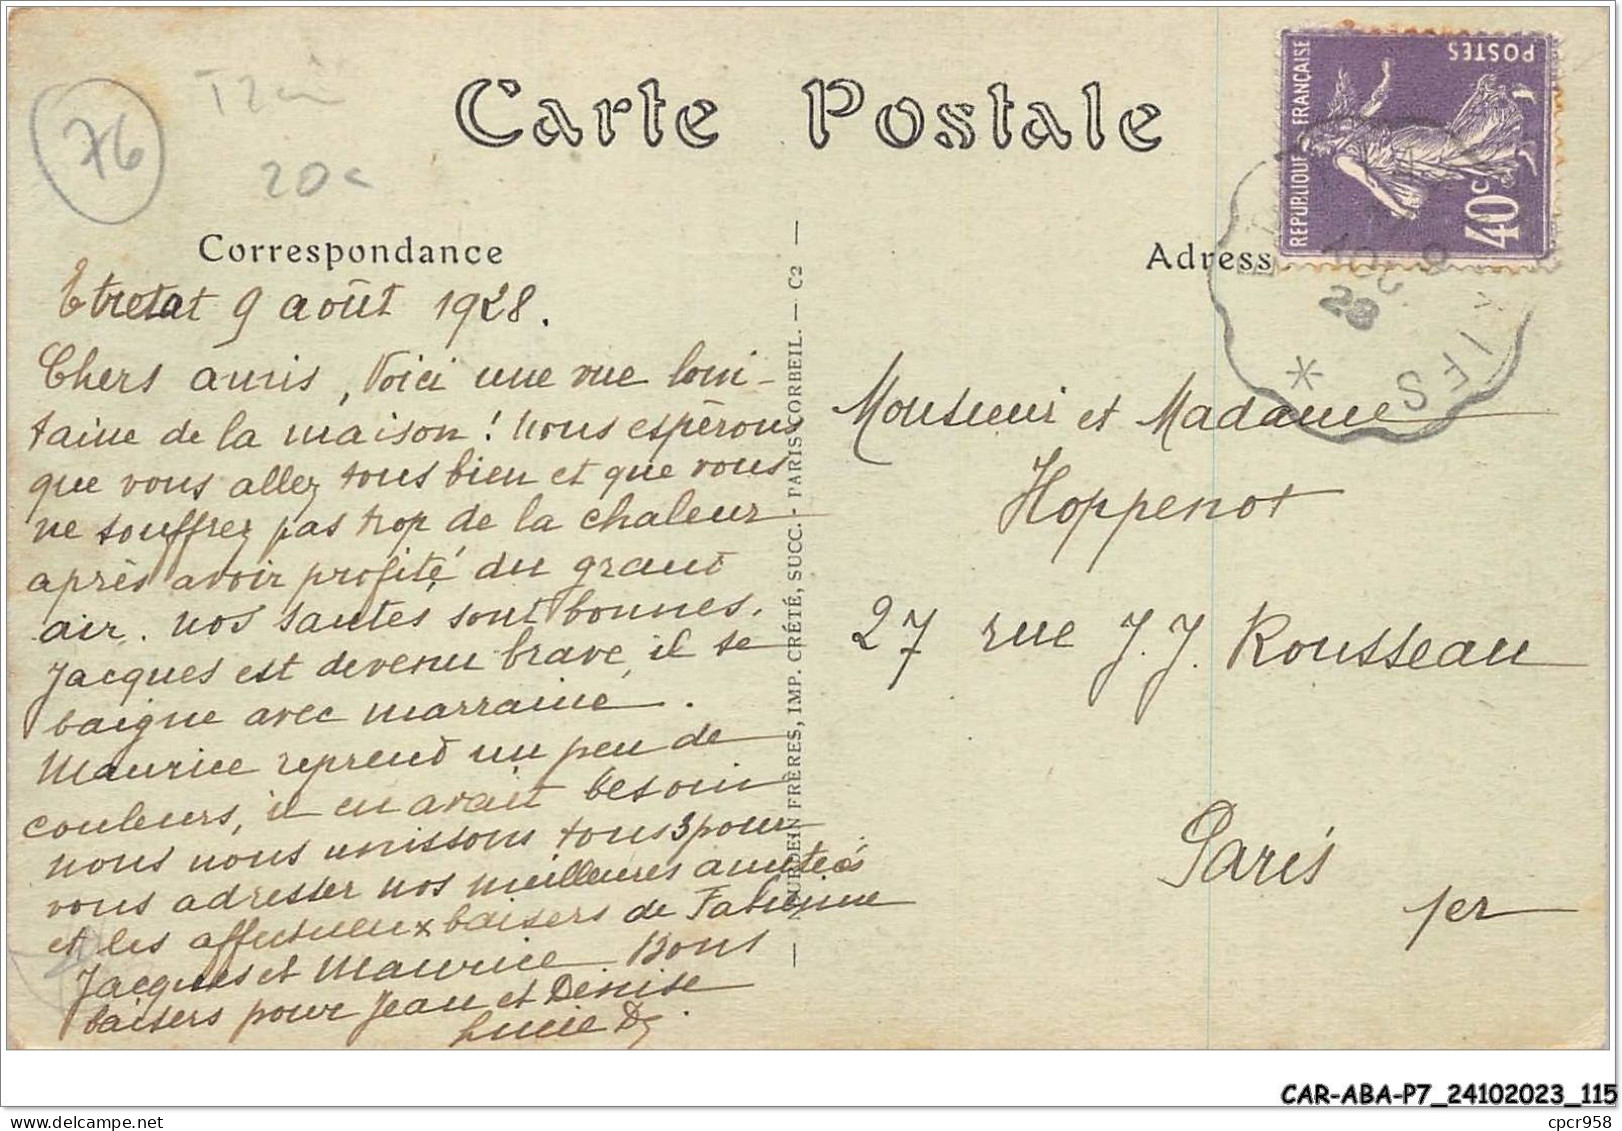 Carte Postale
76
20c
Correspondance
Adress
REPUBLIQUE FRANÇAISE
POSTES
40c
28
IFS
Etretat 9 août 1928.
Chers amis, Voici une vue loin-
taine de la maison ! Nous espérons
que vous allez tous bien et que vous
ne souffrez pas trop de la chaleur
après avoir profité du grand
air. Nos santés sont bonnes.
Jacques est devenu brave, il se
baigne avec marraine.
Maurice reprend un peu de
couleurs, il en avait besoin
nous nous unissons tous 3 pour
vous adresser nos meilleures amitiés
et les affectueux baisers de Fabienne
Jacques et Maurice. Bons
baisers pour Jean et Denise.
Lucie
BOURDEIN FRÈRES, IMP. CRÉTÉ, SUCC. - PARIS-CORBEIL. — C2
Monsieur et Madame
Hoppenot
27 rue J. J. Rousseau
Paris
1er
CAR-ABA-P7_24102023_115
cpcr958